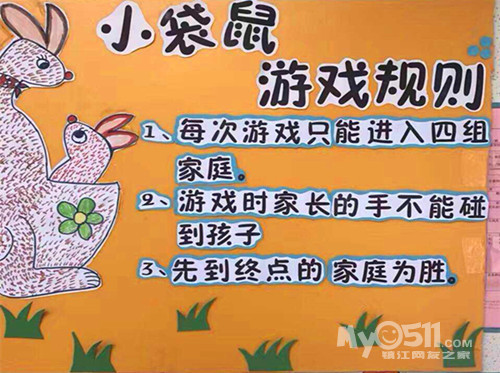 小袋鼠
游戏规则
1、每次游戏只能进入四组
家庭。
2、游戏时家长的手不能碰
到孩子
3、先到终点的家庭为胜。
My0511.com
镇江网友之家